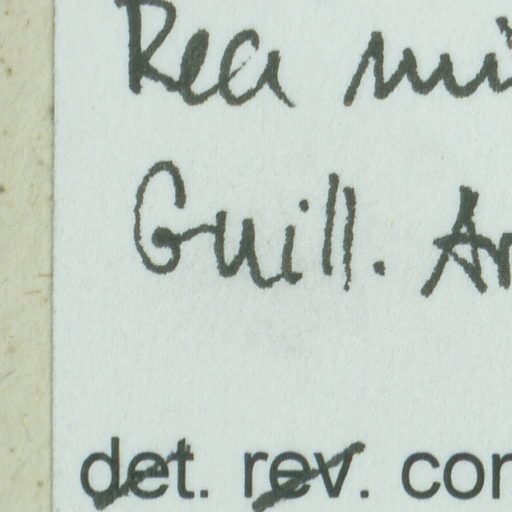 Rea mi
Guill. Ar
det. rev. con